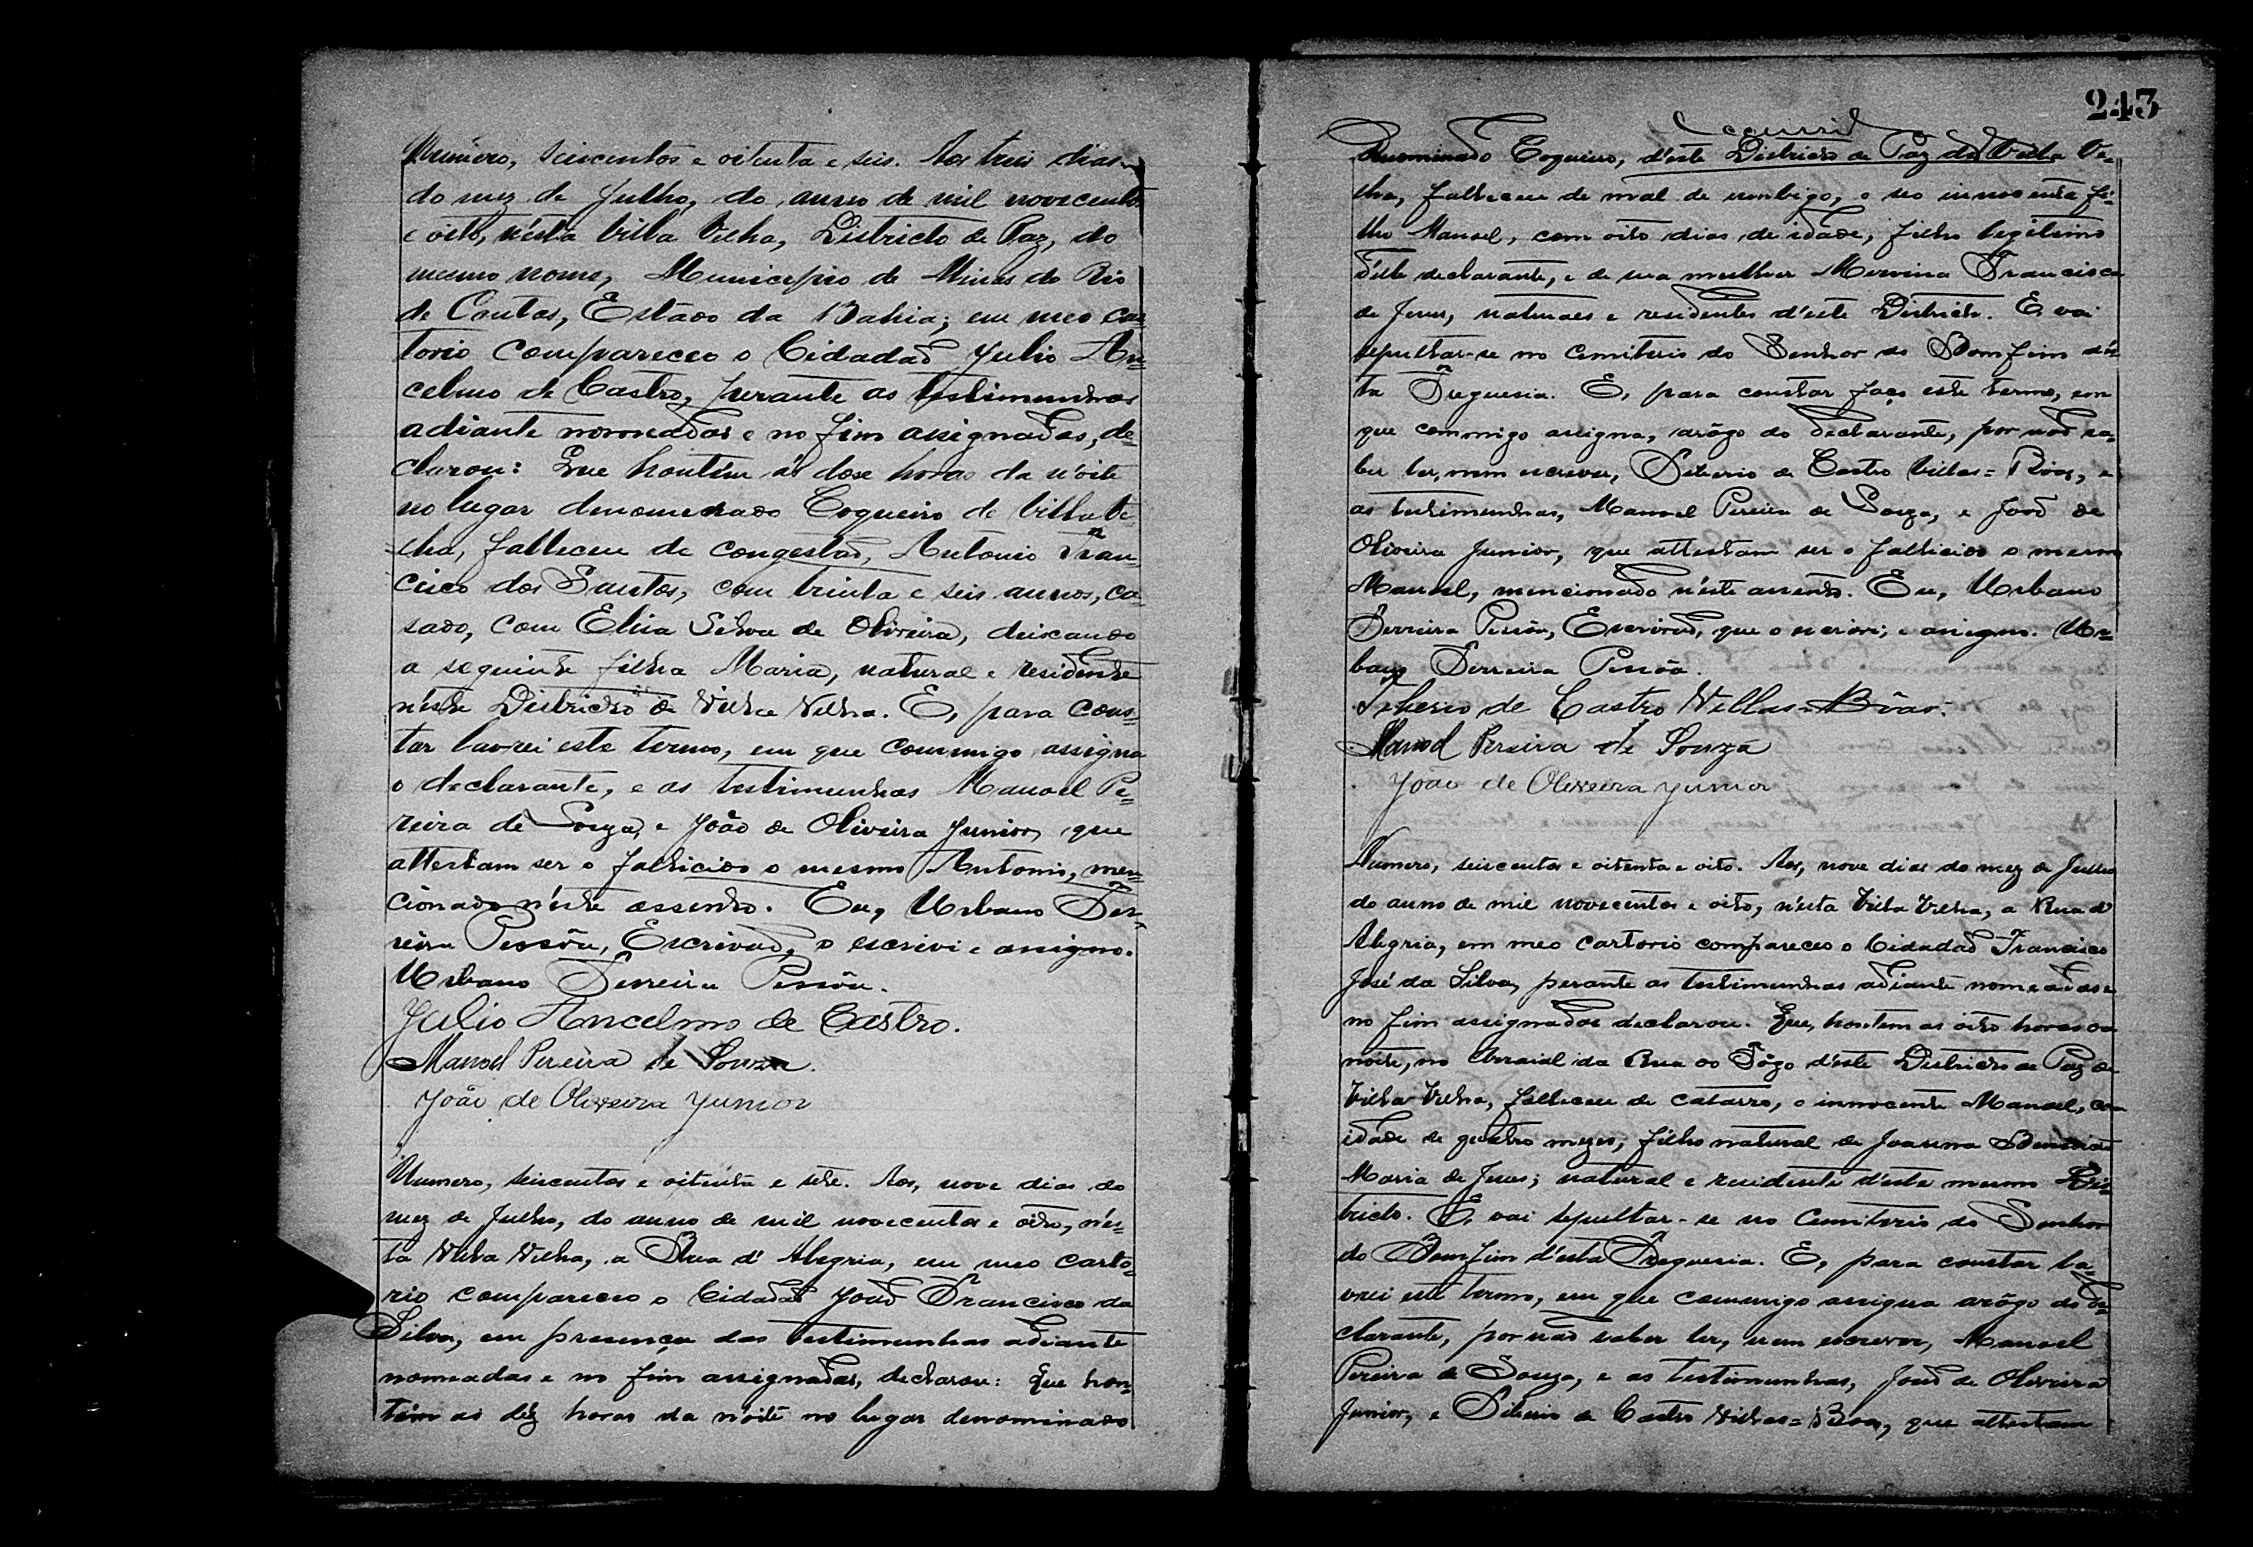 Numero, seiscentos e oitenta e seis. Aos treis dias
do mez de Julho, do anno de mil novecentos
e oito, n'esta Villa Velha, Districto de Paz, do
mesmo nome, Municipio de Minas do Rio
de Contas, Estado da Bahia; em meo car=
torio compareceo o Cidadaõ Julio An=
celmo de Castro, perante as testimunhas
adiante nomeadas e no fim assignadas, de=
clarou: Que hontem ás dose horas da nóite
no lugar denomenado Coqueiro de Villa Ve=
lha, falleceu de congestaõ, Antonio Fran=
cisco dos Santos, com trinta e seis annos, ca=
sado, com Elia Silva de Oliveira, deixando
a seguinte filha Maria, natural e residente
n'este Districto de Villa Velha. E, para cons=
tar lavrei este termo, em que commigo assigna
o declarante, e as testimunhas Manoel Pe=
reira de Souza, e João de Oliveira Junior, que
attestam ser o fallicido o mesmo Antonio, men=
cionado n'este assento. Eu, Urbano Fer=
reira Pessôa, Escrivaõ, o escrivi e assigno.
Urbano Ferreira Pessôa.
Julio Ancelmo de Castro.
Manoel Pereira de Souza.
João de Oliveira Junior
Numero, seiscentos e oitenta e sete. Aos, nove dias do
mez de Julho, do anno de mil novecentos e oito, n'es=
ta Villa Velha, a Rua d'Alegria, em meo carto=
rio compareceo o Cidadaõ Joaõ Francisco da
Silva, em presença das testimunhas adiante
nomeadas e no fim assignadas, declarou: Que hon=
tem as déz horas da nóite no lugar denominado
243
Denominado Coqueiro, d'este Districto de Paz de Villa Ve=
lha, falleceu de mal de umbigo, o seo innocente fi=
lho Manoel, com oito dias de idade, filho legitimo
d'elle declarante, e de sua mulher Francisca
de Jesus, naturaes e residentes d'este Districto. E vai
sepultar-se no Cemiterio do Senhor do Bomfim d'es=
ta Freguesia. E, para constar faço este termo, em
que commigo assigna, arôgo do declarante, por naõ sa=
ber ler, nem escrever, Tiberio de Castro Villas=Boas, e
as testimunhas, Manoel Pereira de Souza, e Joaõ de
Oliveira Junior, que attestam ser o fallicido o mesmo
Manoel, mencionado n'este assento. Eu, Urbano
Ferreira Pessôa, Escrivaõ, que o escrivi; e assigno. Ur=
bano Ferreira Pessôa.
Tiberio de Castro Villas=Bôas.
Manoel Pereira de Souza
João de Oliveira Junior
Numero, seiscentos e oitenta e oito. Aos, nove dias do mez de Julho
do anno de mil novecentos e oito, n'esta Villa Velha, a Rua d'
Alegria, em meo cartorio compareceo o Cidadaõ Francisco
José da Silva, perante as testimunhas adiante nomeadas e
no fim assignadas declarou. Que, hontem as oito horas da
noite, no Arraial da Rua do Fôgo d'este Districto de Paz de
Villa Velha, falleceu de catarro, o innocente Manoel, com
idade de quatro mezes, filho natural de Joanna
Maria de Jesus; natural e residente d'este mesmo Dis=
tricto. E, vai sepultar-se no Cemiterio do Senhor
do Bomfim d'esta Freguesia. E, para constar la=
vrei este termo, em que commigo assigna arôgo do de=
clarante, por naõ saber ler, nem escrever, Manoel
Pereira de Souza, e as testimunhas, Joaõ de Oliveira
Junior, e Tiberio de Castro Villas=Boas, que attestam